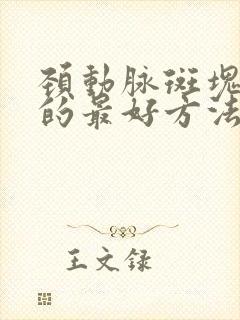 颈動脉斑塊
的最好方法
王文録